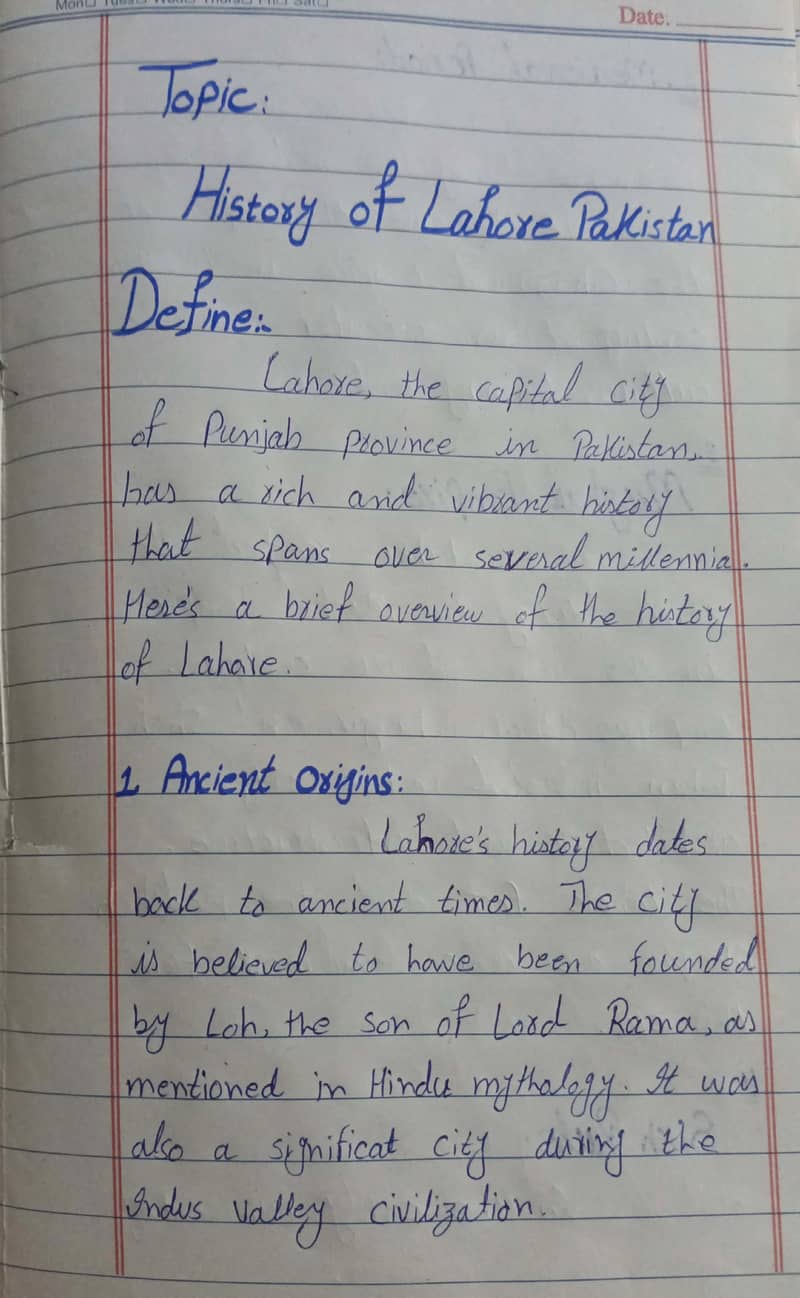 Date.
Topic:
History of Lahore Pakistan
Define:-
Lahore, the capital city
of Punjab province in Pakistan,
has a rich and vibrant history
that spans over several millennia.
Here's a brief overview of the history
of Lahore.
1 Ancient Origins:
Lahore's history dates
back to ancient times. The city
is believed to have been founded
by Loh, the son of Lord Rama, as
mentioned in Hindu mythology. It was
also a significat city during the
Indus Valley civilization.